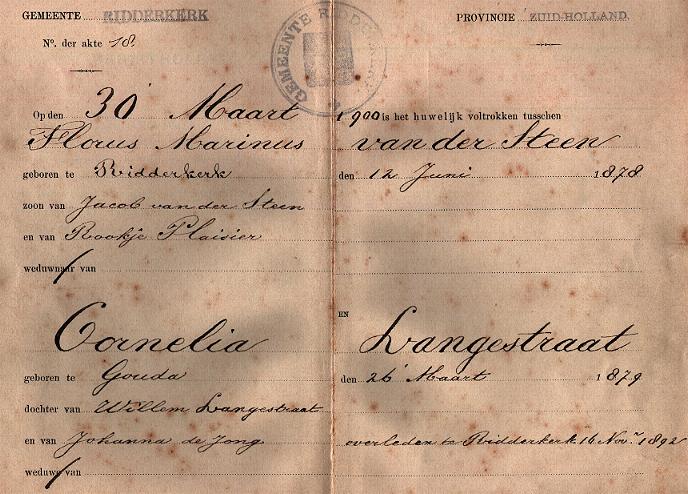 GEMEENTE RIDDERKERK PROVINCIE ZUID-HOLLAND.
Nº. der akte 18.
GEMEENTE RIDDE
Op den 30 Maart 1900 is het huwelijk voltrokken tusschen
Florus Marinus van der Steen
geboren te Ridderkerk den 12 Juni 1878
zoon van Jacob van der Steen
en van Rookje Plaisier
weduwnaar van
EN
Cornelia Langestraat
geboren te Gouda den 26 Maart 1879
dochter van Willem Langestraat
en van Johanna de Jong overleden te Ridderkerk 16 Nov. 1892
weduwe van